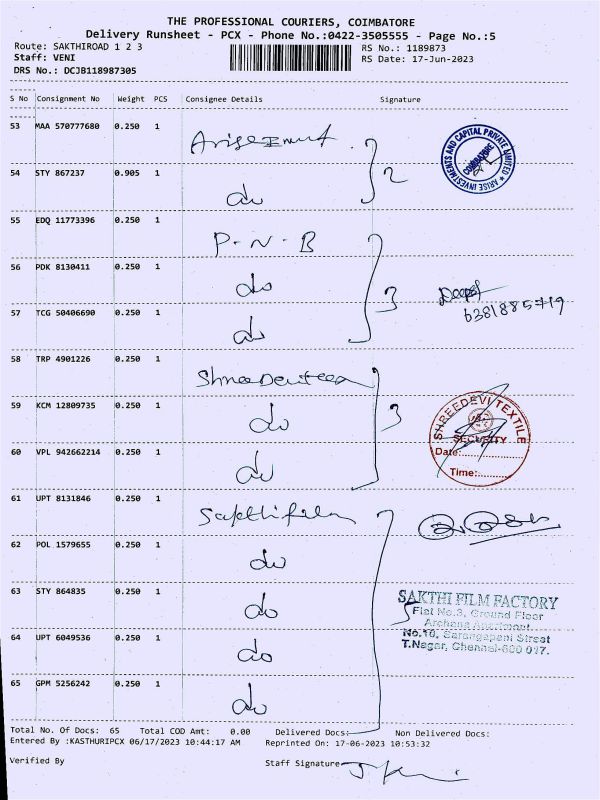 THE PROFESSIONAL COURIERS, COIMBATORE
Delivery Runsheet - PCX - Phone No.:0422-3505555 - Page No.:5
Route: SAKTHIROAD 1 2 3
RS No.: 1189873
Staff: VENI
RS Date: 17-Jun-2023
DRS No.: DCJB118987305
S No Consignment No Weight PCS Consignee Details Signature
53 MAA 570777680 0.250 1
54 STY 867237 0.905 1 do
2
ARISE INVESTMENTS AND CAPITAL PRIVATE LIMITED
COIMBATORE
55 EDQ 11773396 0.250 1 P-N-B
56 PDK 8130411 0.250 1 do
57 TCG 50406690 0.250 1 do
3
Deepa
6381885719
58 TRP 4901226 0.250 1
59 KCM 12809735 0.250 1 do
60 VPL 942662214 0.250 1 do
3
SHREEDEVI TEXTILE
SECURITY
Date:............
Time:............
61 UPT 8131846 0.250 1 Sakthifilm
62 POL 1579655 0.250 1 do
63 STY 864835 0.250 1 do
64 UPT 6049536 0.250 1 do
65 GPM 5256242 0.250 1 do
5
SAKTHI FILM FACTORY
Flat No.3, Ground Floor
Archana Apartment
No.10, Sarangapani Street
T.Nagar, Chennai-600 017.
Total No. Of Docs: 65 Total COD Amt: 0.00 Delivered Docs: Non Delivered Docs:
Entered By :KASTHURIPCX 06/17/2023 10:44:17 AM Reprinted On: 17-06-2023 10:53:32
Verified By Staff Signature